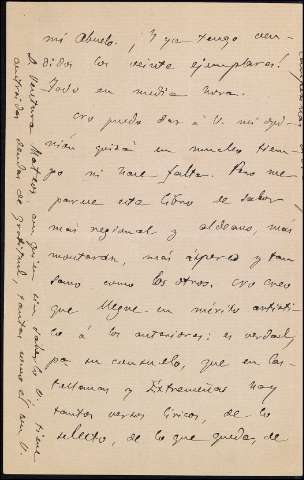 mi abuelo. ¡Y ya tengo ven-
didos los veinte ejemplares!
Todo en media hora.
No puedo dar á V. mi opi-
nión quizá en mucho tiem-
po ni hace falta. Pero me
parece este libro de sabor
más regional y aldeano, más
montaraz, más áspero y tan
sano como los otros. No creo
que llegue en mérito artísti-
co á los anteriores: es verdad,
pa su consuelo, que en Cas-
tellanas y Extremeñas hay
tantos versos líricos, de lo
selecto, de lo que queda, de
D. Ventura Mateos, con quien sin saberlo V. tiene
contraídas deudas de gratitud, tantas como él con V.